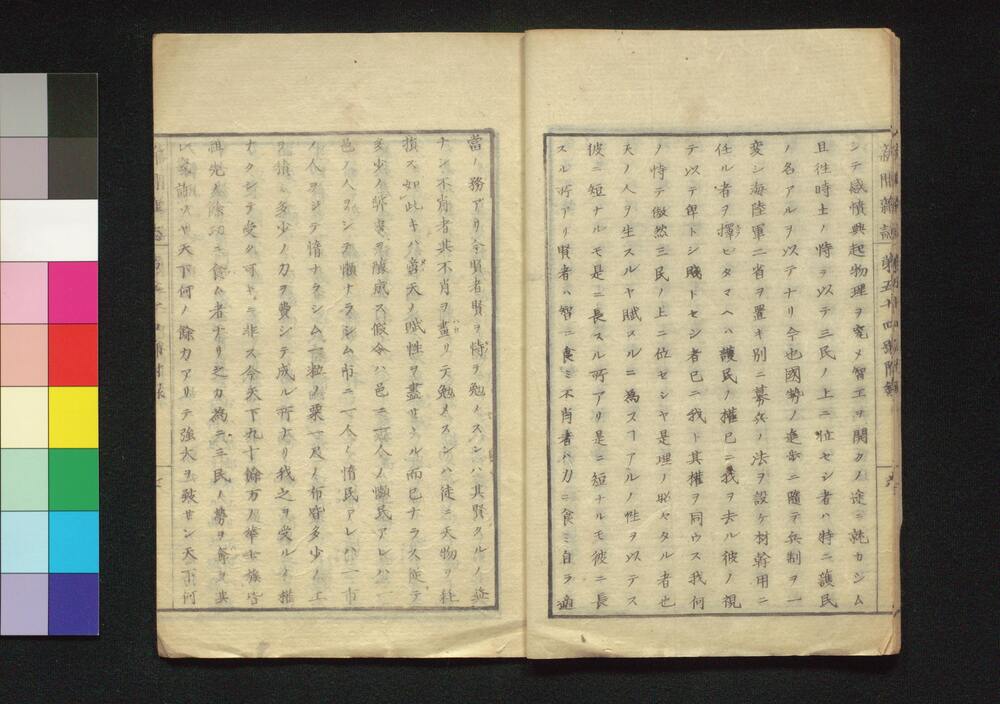 新聞雜誌 第五十四號附錄
シテ感憤興起物理ヲ究メ智工ヲ開クノ途ニ就カシム
且往時士ノ恃ヲ以テ三民ノ上ニ位セシ者ハ特ニ護民
ノ名アルヲ以テナリ今也國勢ノ進歩ニ隨テ兵制ヲ一
変シ海陸軍二省ヲ置キ別ニ募兵ノ法ヲ設ケ材幹用ニ
任ル者ヲ擇ヒタマヘハ護民ノ權已ニ我ヲ去ル彼ノ視
テ以テ卑トシ賤トセシ者已ニ我ト其權ヲ同ウス我何
ノ恃テ傲然三民ノ上ニ位セシヤ是理ノ タル者也
天ノ人ヲ生スルヤ賦スルニ為スヿアルノ性ヲ以テス
彼ニ短ナルモ是ニ長スル所アリ是ニ短ナルモ彼ニ長
スル所アリ賢者ハ智ニ食ミ不肖者ハ力ニ食ミ自ラ適
當ノ務アリ今賢者賢ヲ恃ヲ勉メスンハ其賢タルノ益
ナシ不肖者其不肖ヲ盡リテ勉メスンハ徒ニ天物ヲ耗
損ス如此キハ啻天ノ賦性ヲ盡サヽル而已ナラス從テ
多少ノ弊害ヲ釀成ス假令ハ邑ニ一人ノ懶民アレハ一
邑ノ人ヲシテ懶ナラシム市ニ一人ノ惰民アレハ一市
ノ人ヲシテ惰ナラシム一粒ノ粟一尺ノ布皆多少ノ工
ヲ積ミ多少ノ力ヲ費シテ成ル所ナリ我之ヲ受ルノ權
ナクシテ受ク可キニ非ス今天下九十餘万ノ華士族皆
祖先ノ餘功ニ食ム者ナリ之カ為ニ三民ノ勢ヲ奪ヒ其
以 ヤ天下何ノ餘力アリテ強大ヲ致サン天下何